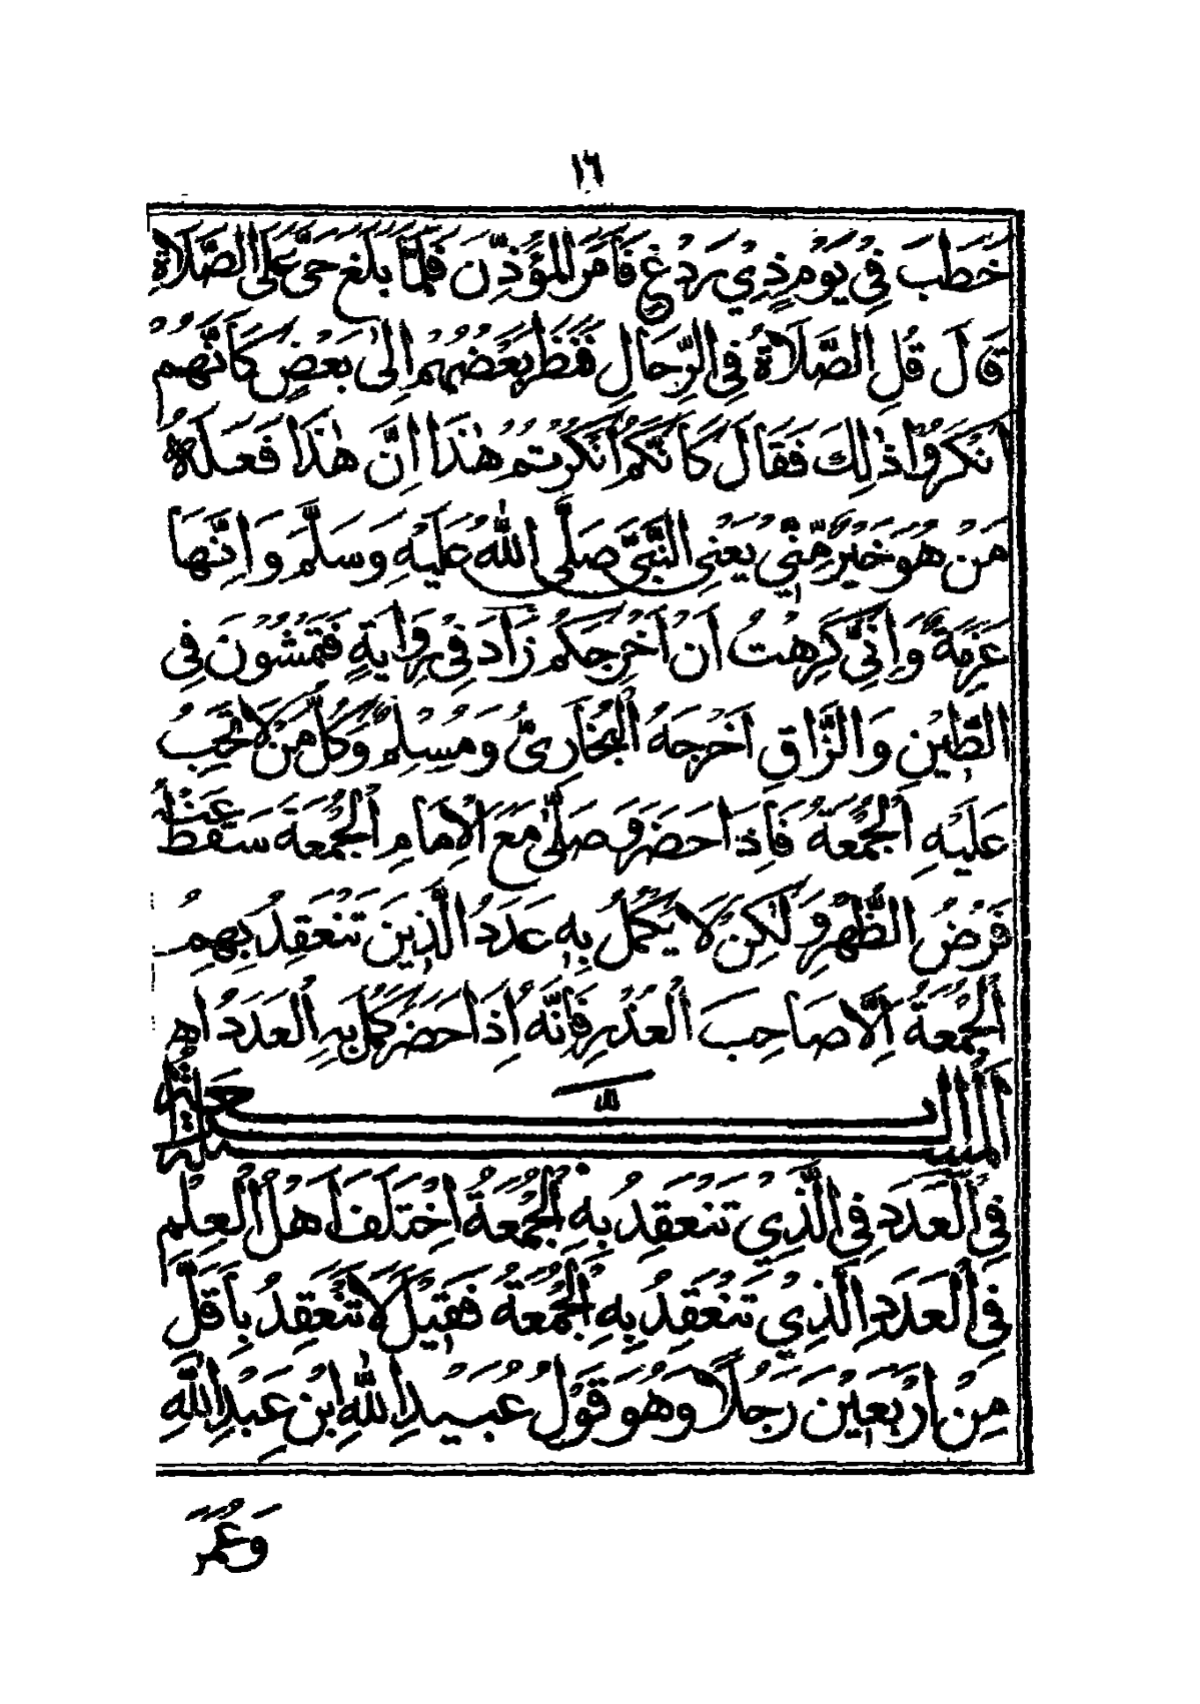 ١٦
خَطَبَ فِيْ يَوْمٍ ذِيْ رَدْغٍ فَأَمَرَ الْمُؤَذِّنَ فَلَمَّا بَلَغَ حَيَّ عَلَى الصَّلَاةِ
قَالَ قُلِ الصَّلَاةُ فِي الرِّجَالِ فَنَظَرَ بَعْضُهُمْ اِلٰى بَعْضٍ كَاَنَّهُمْ
اَنْكَرُوْا ذٰلِكَ فَقَالَ كَاَنَّكُمْ اَنْكَرْتُمْ هٰذَا اِنَّ هٰذَا فَعَلَهُ
مَنْ هُوَ خَيْرٌ مِّنِّيْ يَعْنِى النَّبِيَّ صَلَّى اللّٰهُ عَلَيْهِ وَسَلَّمَ وَاِنَّهَا
عَزْمَةٌ وَاِنِّيْ كَرِهْتُ اَنْ اُخْرِجَكُمْ زَادَ فِيْ رِوَايَةٍ فَتَمْشُوْنَ فِى
الطِّيْنِ وَالزَّاقِ اَخْرَجَهُ الْبُخَارِىُّ وَمُسْلِمٌ وَكُلُّ مَنْ لَا تَجِبُ
عَلَيْهِ الْجُمُعَةُ فَاِذَا حَضَرَ وَصَلّٰى مَعَ الْاِمَامِ الْجُمُعَةَ سَقَطَ عَنْهُ
فَرْضُ الظُّهْرِ وَلٰكِنْ لَا يَكْمُلُ بِهِ عَدَدُ الَّذِيْنَ تَنْعَقِدُ بِهِمُ
الْجُمُعَةُ اِلَّا صَاحِبَ الْعُذْرِ فَاِنَّهُ اِذَا حَضَرَ كَمُلَ بِهِ الْعَدَدُ اهـ
اَلْمَسْئَلَةُ الثَّالِثَةُ
فِى الْعَدَدِ فِى الَّذِيْ تَنْعَقِدُ بِهِ الْجُمُعَةُ اِخْتَلَفَ اَهْلُ الْعِلْمِ
فِى الْعَدَدِ الَّذِيْ تَنْعَقِدُ بِهِ الْجُمُعَةُ فَقِيْلَ لَا تَنْعَقِدُ بِاَقَلَّ
مِنْ اَرْبَعِيْنَ رَجُلًا وَهُوَ قَوْلُ عُبَيْدِ اللّٰهِ ابْنِ عَبْدِ اللّٰهِ
وَعُمَرَ